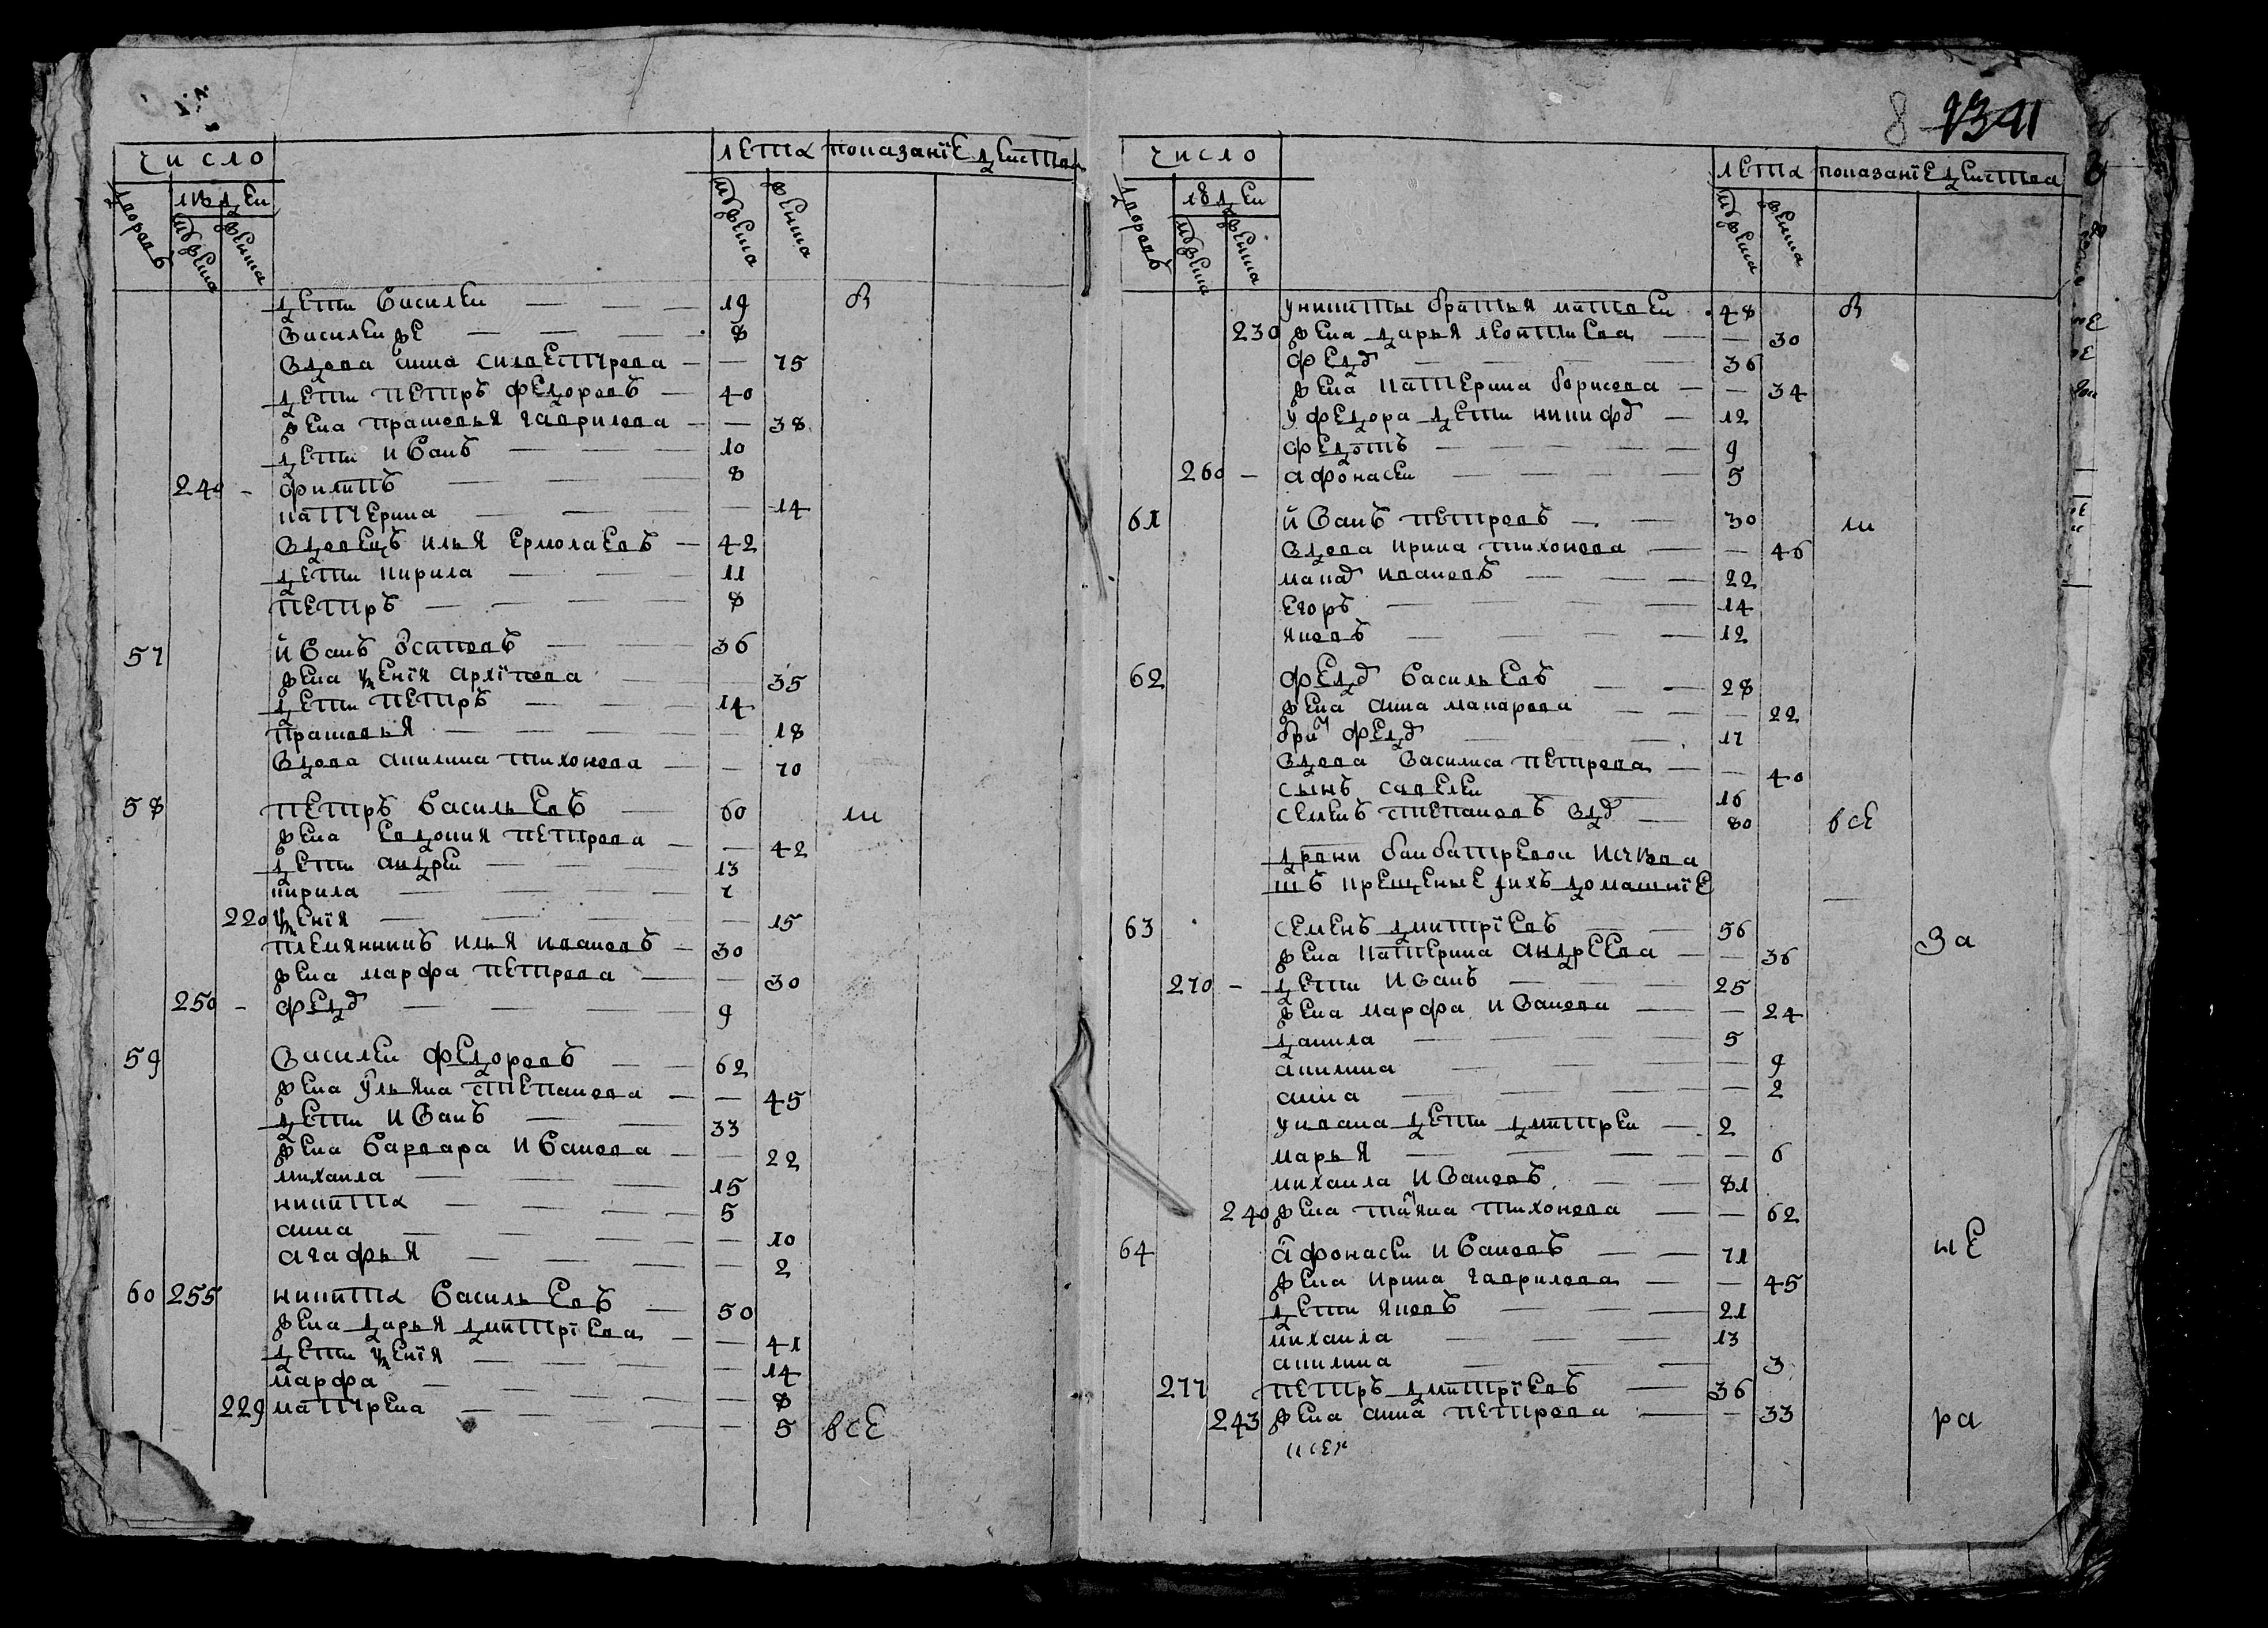 8 1341
число лета показание действа
дворовъ людей мужеска женска мужеска женска
дети Василеи — — 19 в
Василеи же — — 8
Вдова анна силветрова — — 75
дети петръ федоровъ — 40
жена прасковья гаврилова — — 38
дети иванъ — — 10
240 - филипъ — — 8
катерина — — — 14
Вдовецъ илья ермолаевъ — 42
дети кирила — — 11
петръ — — — 8
57 иванъ осиповъ — — 36
жена ксенїя архїпова — 35
дети петръ — — 14
прасковья — — — 18
Вдова акилина тихонова — — 70
58 петръ васильевъ — — 60 ли
жена евдокия петрова — — 42
дети андреи — — 13
кирила — — 7
220 ксенїя — — — 15
племянникъ илья ивановъ — 30
жена марфа петрова — — 30
250 - федо — — — 9
59 Василеи федоровъ — — 62
жена ульяна степанова — — 45
дети иванъ — — 33
жена варвара иванова — — 22
михаила — — — 15
никита — — — 5
анна — — — 10
агафья — — — 2
60 255 никита васильевъ — 50
жена дарья дмитрїева — — 41
дети ксенїя — — — 14
марфа — — — 8
229 матрена — — — 5 все
число лета показание действа
дворовъ людей мужеска женска мужеска женска
у никиты братья матвеи 48 в
230 жена дарья леонтиева — — 30
федо — — — 36
жена катерина борисова — — 34
у федора дети никифо — 12
федотъ — — — 9
260 - афонасеи — — — 5
61 иванъ петровъ — — 30 ли
Вдова ирина тихонова — — 46
мака ивановъ — — 22
егоръ — — — 14
яковъ — — — 12
62 федо васильевъ — — 28
жена анна макарова — — 22
бра федо — — 17
Вдова василиса петрова — — 40
сынъ савелеи — 16
семенъ степановъ вдо — 80 все
крещеные ихъ домашнїе —
63 семенъ дмитрїевъ — — 56 за
жена катерина андреева — — 36
270 - дети иванъ — — 25
жена марфа иванова — — 24
данила — — — 5
акилина — — — 9
анна — — — 2
у ивана дети дмитреи — 2
марья — — — 6
михаила ивановъ — — 81
240 жена татьяна тихонова — — 62
64 афонасеи ивановъ — — 71 не
жена ирина гаврилова — — 45
дети яковъ — — — 21
михаила — — — 13
акилина — — 3
277 петръ дмитрїевъ — 36
243 жена анна петрова — — 33 ра